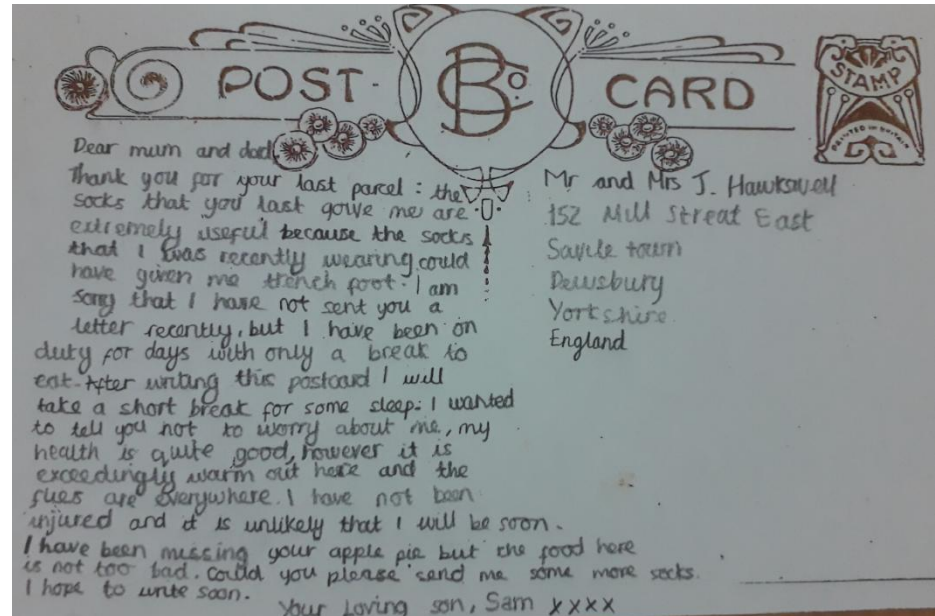 POST CARD
BCo.
STAMP
PRINTED IN BRITAIN
Dear mum and dad,
Thank you for your last parcel: the
socks that you last gave me are
extremely useful because the socks
that I was recently wearing could
have given me trench foot. I am
sorry that I have not sent you a
letter recently, but I have been on
duty for days with only a break to
eat. After writing this postcard I will
take a short break for some sleep. I wanted
to tell you not to worry about me, my
health is quite good, however it is
exceedingly warm out here and the
flies are everywhere. I have not been
injured and it is unlikely that I will be soon.
I have been missing your apple pie but the food here
is not too bad. Could you please send me some more socks.
I hope to write soon.
Your Loving son, Sam xxxx
Mr and Mrs J. Hawkswell
152 Mill Streat East
Savile town
Dewsbury
Yorkshire
England